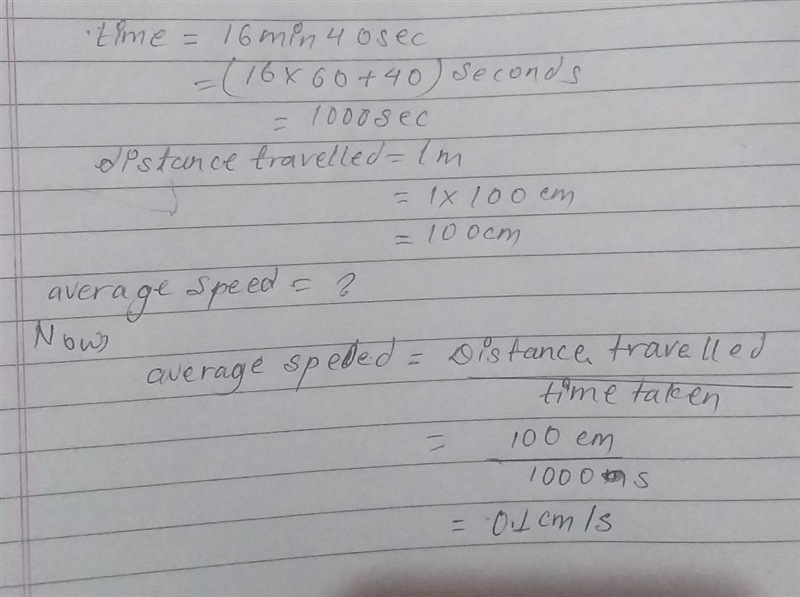 time = 16min 40sec
= (16 × 60 + 40) seconds
= 1000sec
distance travelled = 1m
= 1 × 100 cm
= 100cm
average speed = ?
Now,
average speeed = Distance travelled
time taken
= 100 cm
1000 s
= 0.1 cm/s